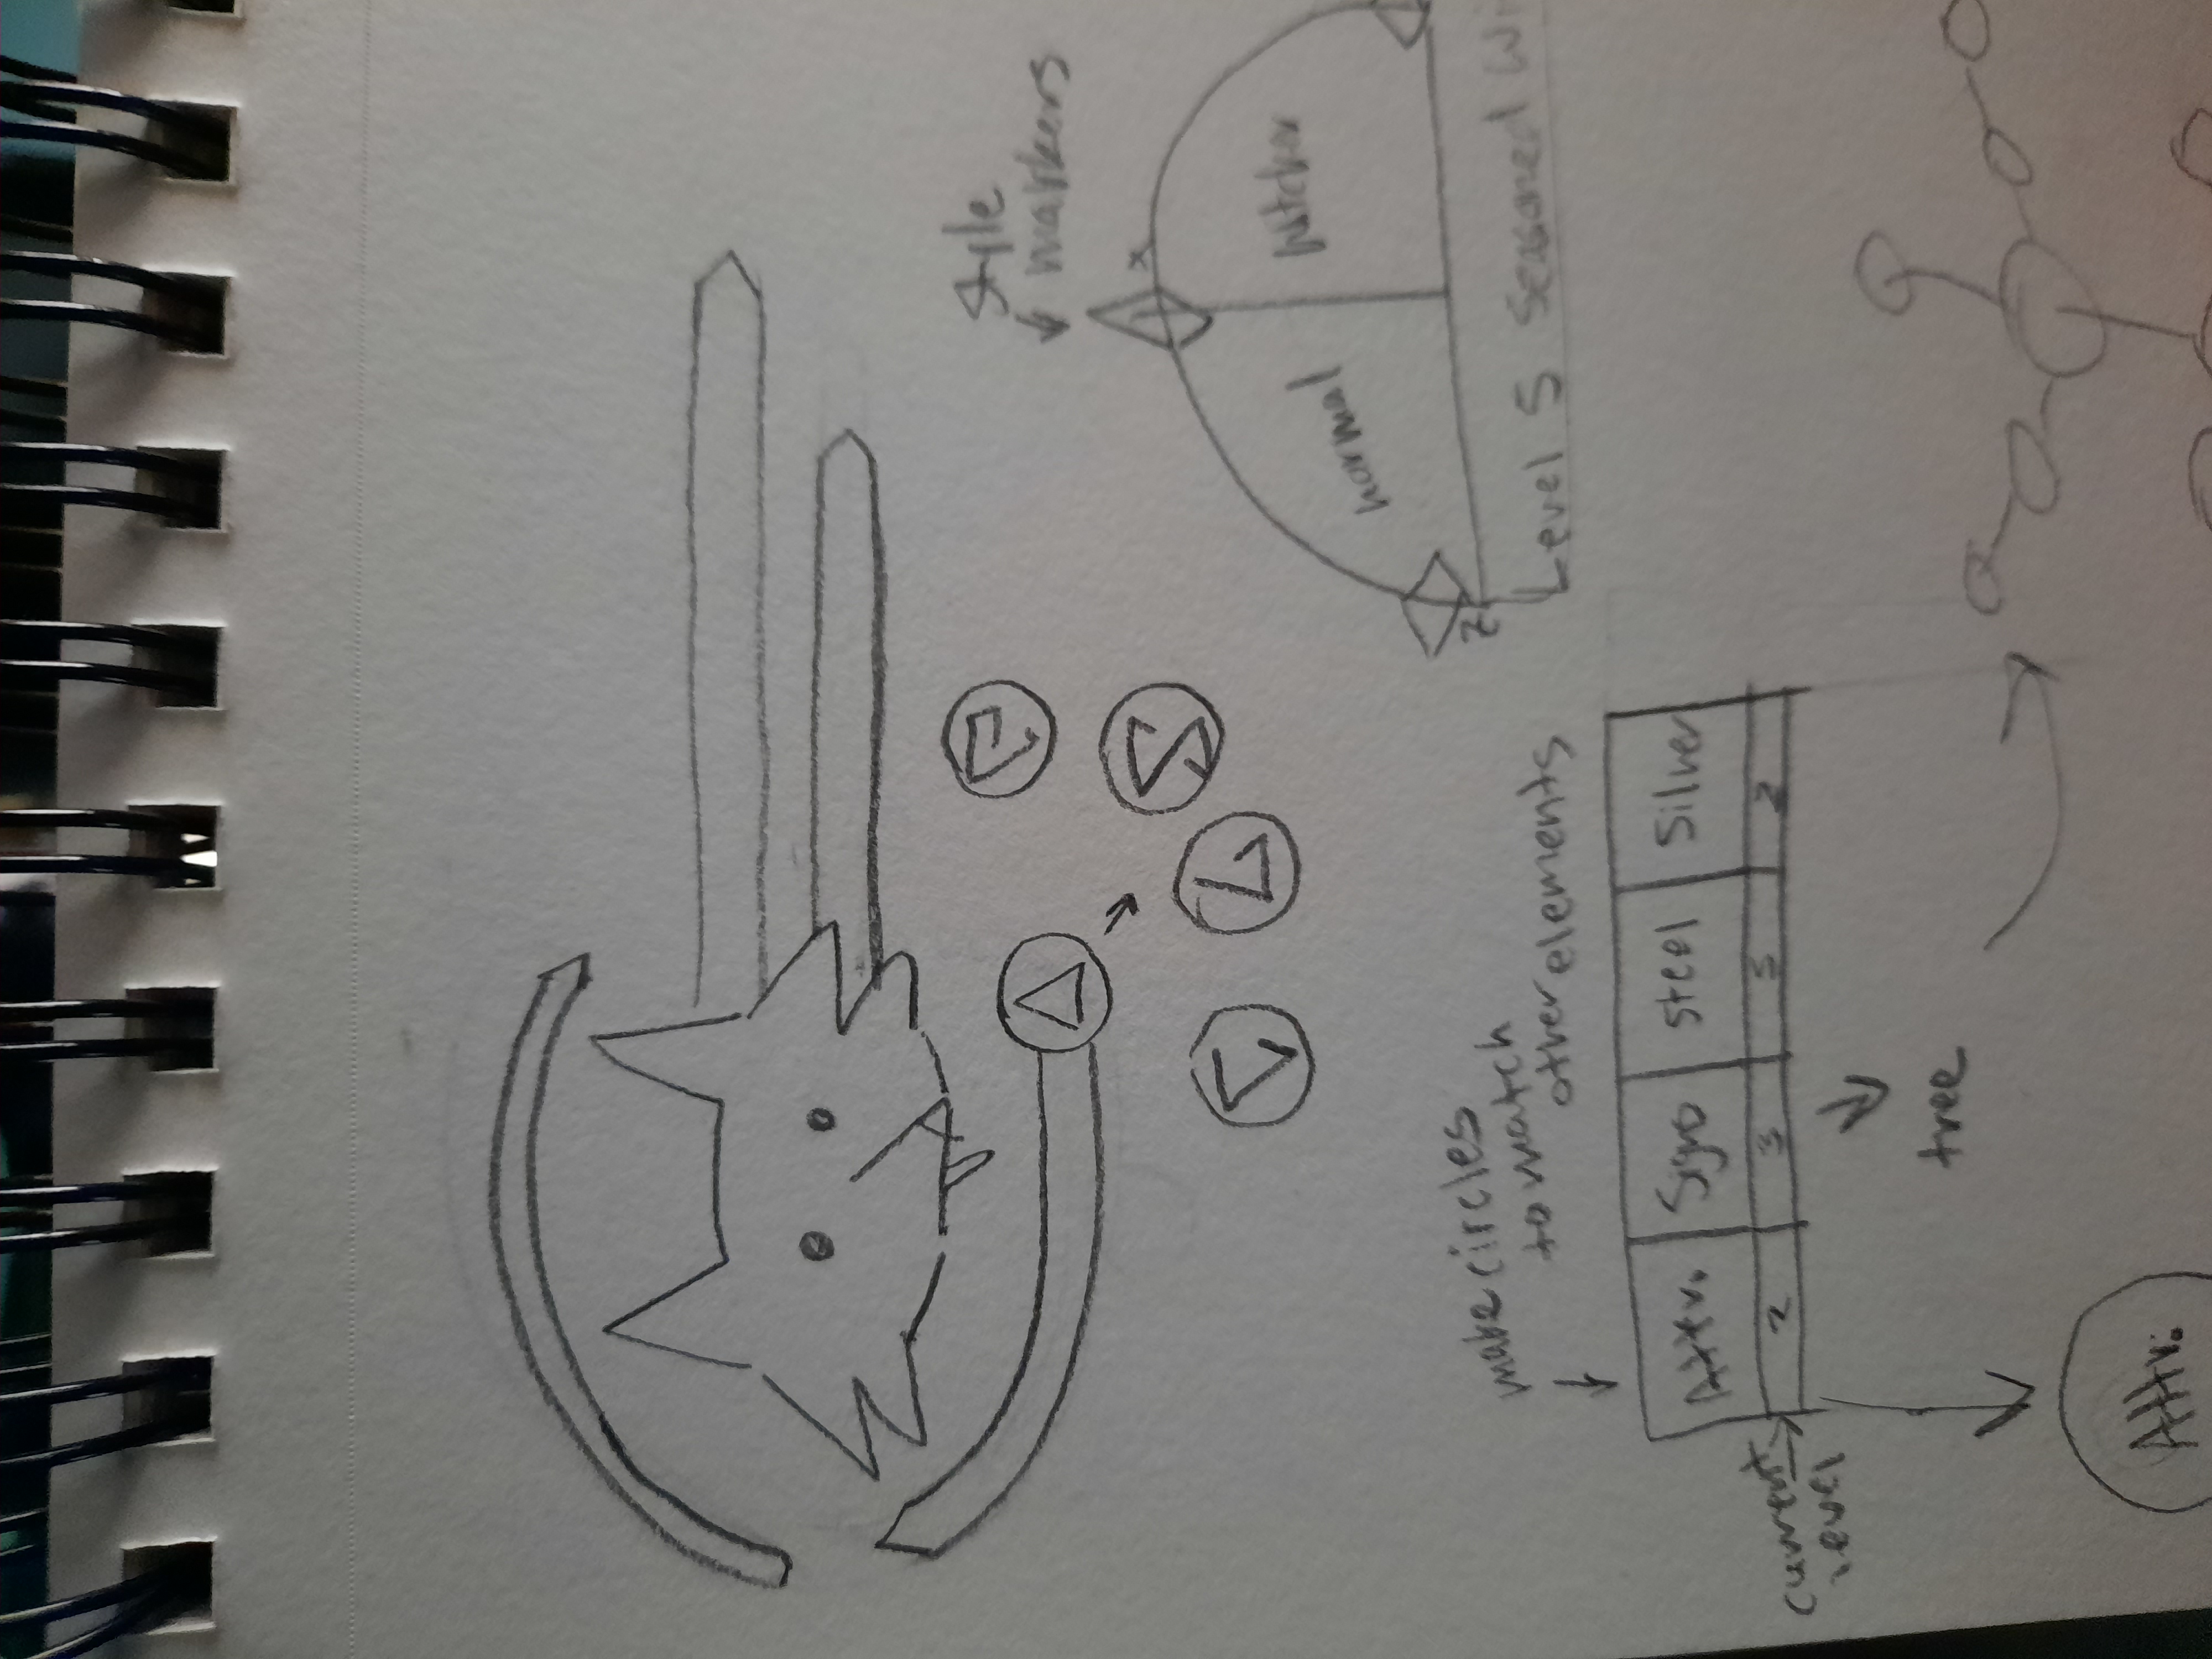 Style
markers
x
normal
Witcher
z
Level 5 Seasoned Wi
make circles
to match
other elements
Attr.
Signs
Steel
Silver
current
level
2
3
3
2
tree
Attr.